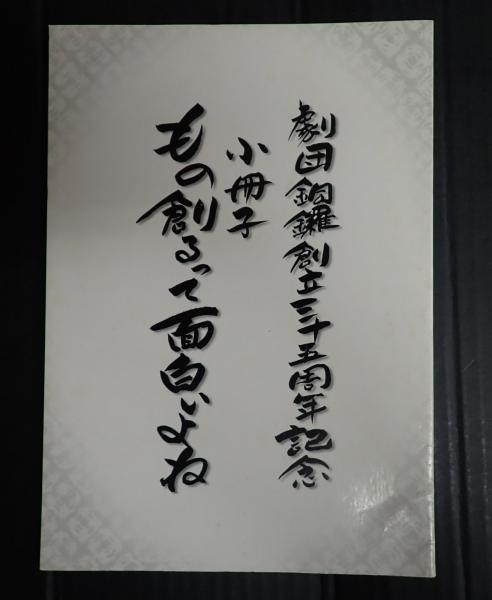 劇団銅鑼創立三十五周年記念
小冊子
もの創るって面白いよね